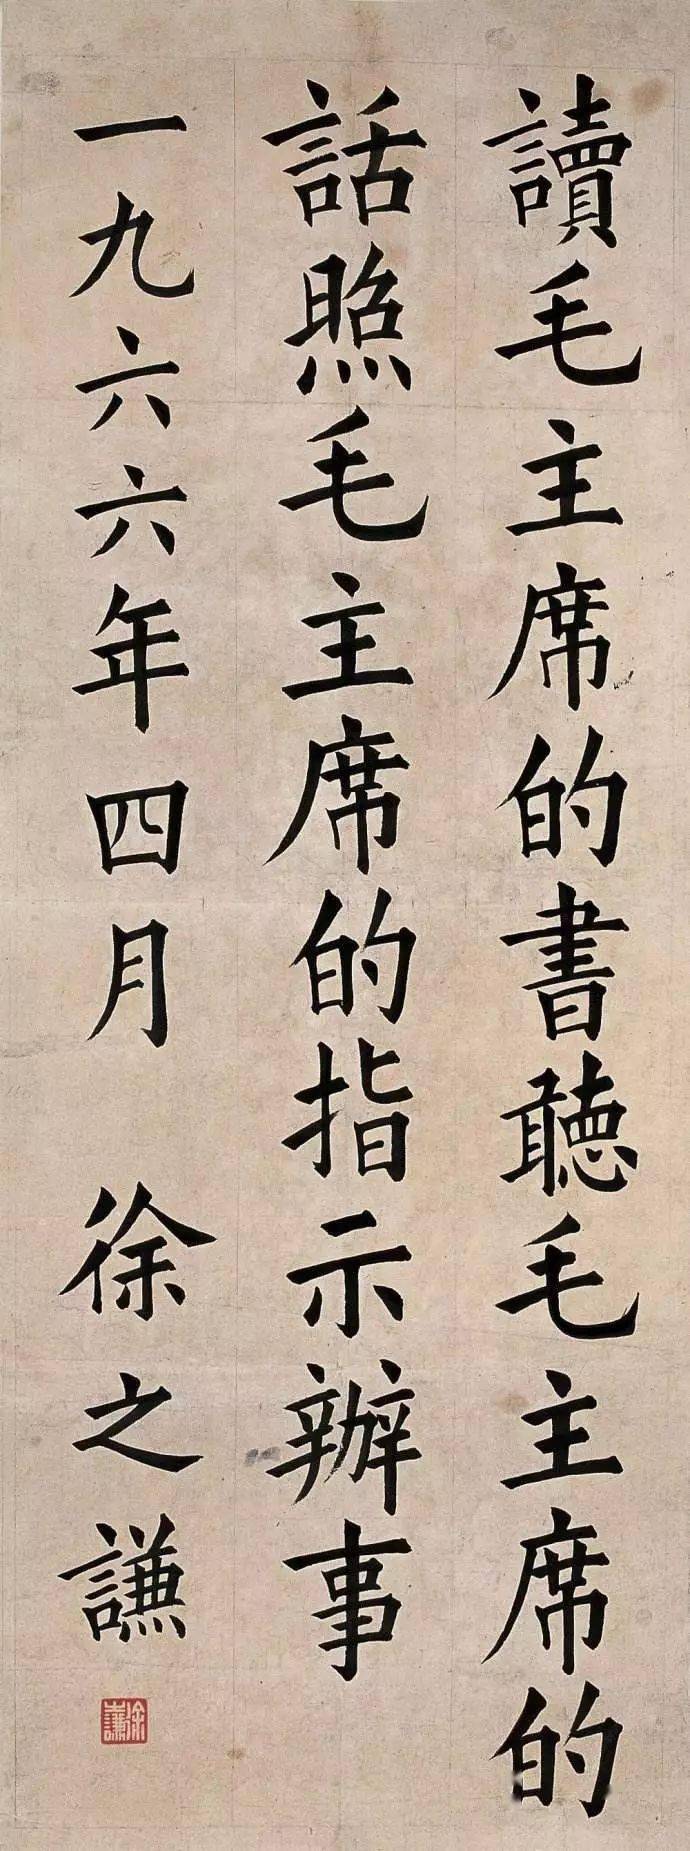 讀毛主席的書聽毛主席的
話照毛主席的指示辦事
一九六六年四月 徐之謙
徐謙